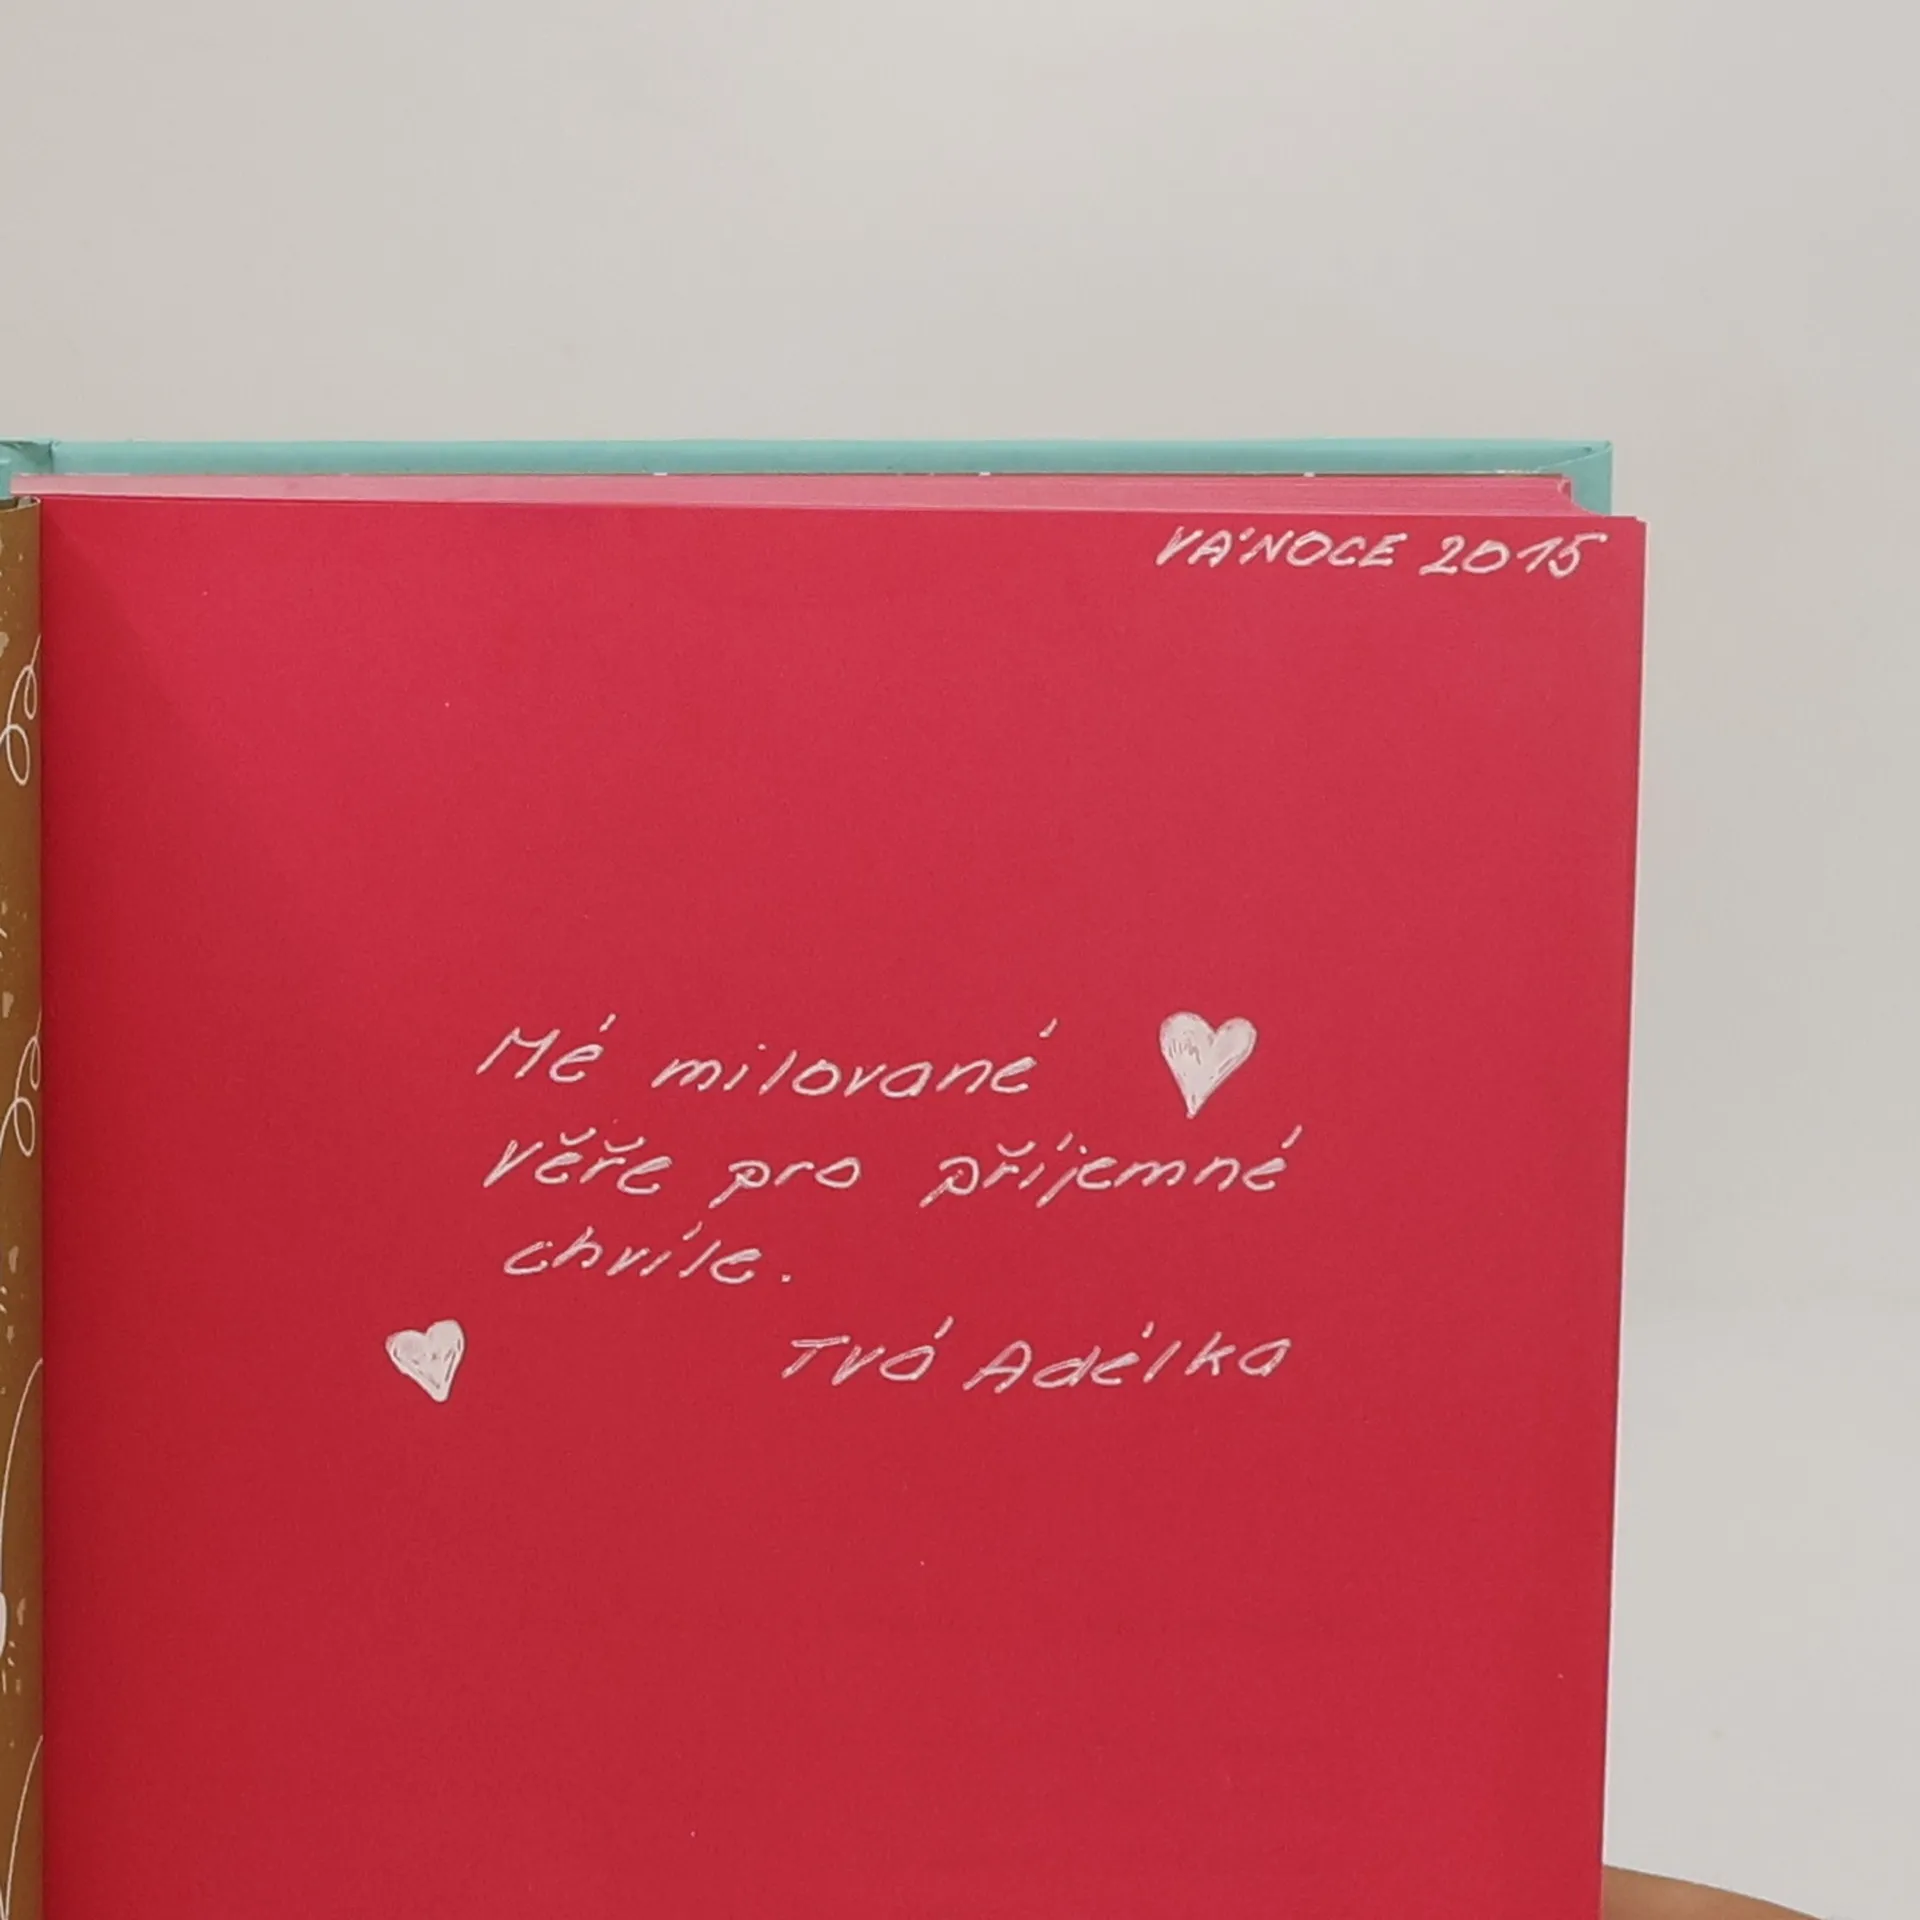 VÁNOCE 2015
Mé milované
Věře pro příjemné
chvíle.
Tvá Adélka